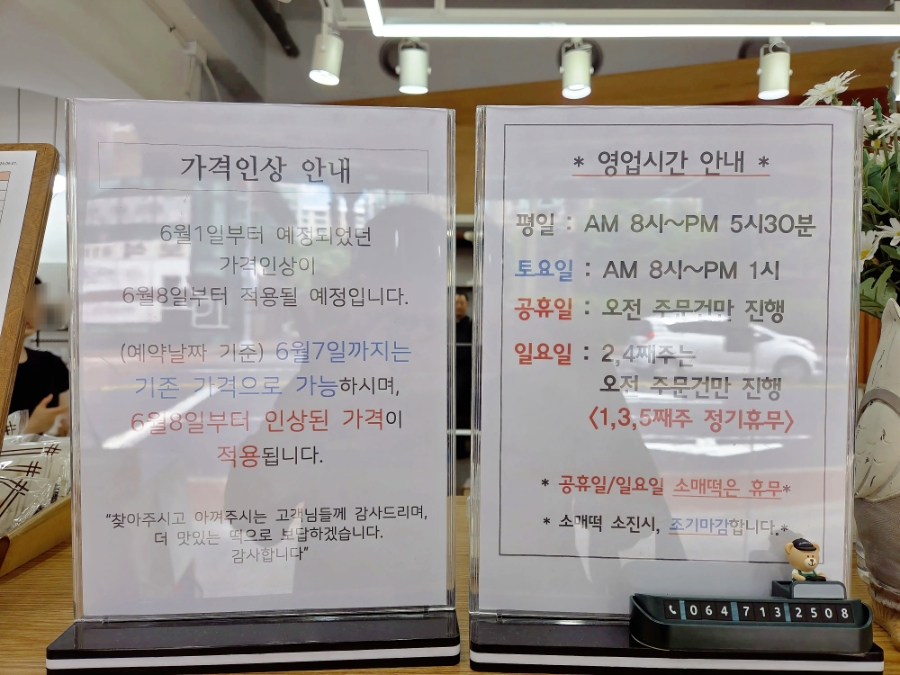 가격인상 안내
6월1일부터 예정되었던
가격인상이
6월8일부터 적용될 예정입니다.
(예약날짜 기준) 6월7일까지는
기존 가격으로 가능하시며,
6월8일부터 인상된 가격이
적용됩니다.
"찾아주시고 아껴주시는 고객님들께 감사드리며,
더 맛있는 떡으로 보답하겠습니다.
감사합니다"
* 영업시간 안내 *
평일 : AM 8시~PM 5시30분
토요일 : AM 8시~PM 1시
공휴일 : 오전 주문건만 진행
일요일 : 2,4째주는
오전 주문건만 진행
<1,3,5째주 정기휴무>
* 공휴일/일요일 소매떡은 휴무*
* 소매떡 소진시, 조기마감합니다.*
064 713 2508